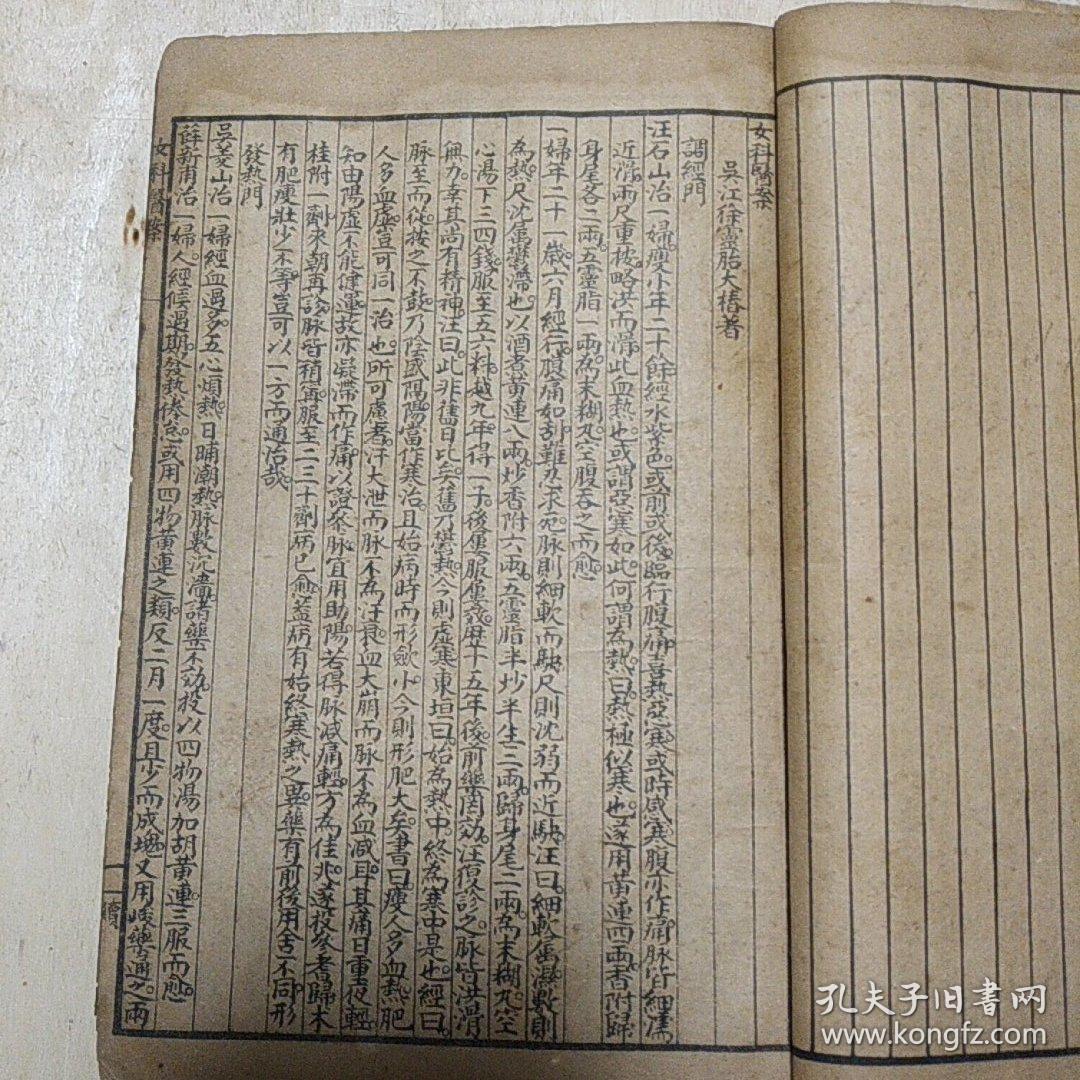 女科醫案
吳江徐靈胎大椿著
調經門
汪石山治一婦瘦小年二十餘經水紫色或前或後臨行腹痛喜熱惡寒或時感寒腹亦作痛脉皆細濡
近滑兩尺重按略洪而滑此血熱也或謂惡寒如此何謂為熱曰熱極似寒也遂用黃連四兩香附歸
身尾各二兩五靈脂一兩為末糊丸空腹吞之而愈
一婦年二十一歲六月經行腹痛如刮難忍求死脉則細軟而駃尺則沈弱而近駃汪曰細軟屬濕數則
為熱尺沈屬鬱滯也以酒煮黃連八兩炒香附六兩五靈脂半炒半生三兩歸身尾二兩為末糊丸空
心湯下三四錢服至五六料越九年得一子後屢服屢效歷十五年後前藥罔効汪復診之脉皆洪滑
無力幸其尚有精神汪曰此非舊日比矣舊乃鬱熱今則虛寒東垣曰始為熱中終為寒中是也經曰
脉至而從按之不鼓乃陰盛隔陽當作寒治且始病時而形歛小今則形肥大矣書曰瘦人多血熱肥
人多血虛豈可同一治也所可慮者汗大泄而脉不為汪衰血大崩而脉不為血減耳其痛日重夜輕
知由陽虛不能健運故亦凝滯而作痛以證參脉宜用助陽若得脉減痛輕方為佳兆遂投參耆歸木
桂附一劑來朝再診脉皆稍寧服至二三十劑病已愈蓋病有始終寒熱之異藥有前後用舍不同形
有肥瘦壯少不等豈可以一方而通治哉
發熱門
吳茭山治一婦經血過多五心煩熱日晡潮熱脉數沉濇諸藥不効投以四物湯加胡黃連三服而愈
薛新甫治一婦人經候過期發熱倦怠或用四物黃連之類反二月一度且少而成塊又用峻藥通之兩
女科醫案
一
讀
孔夫子旧书网
www.kongfz.com